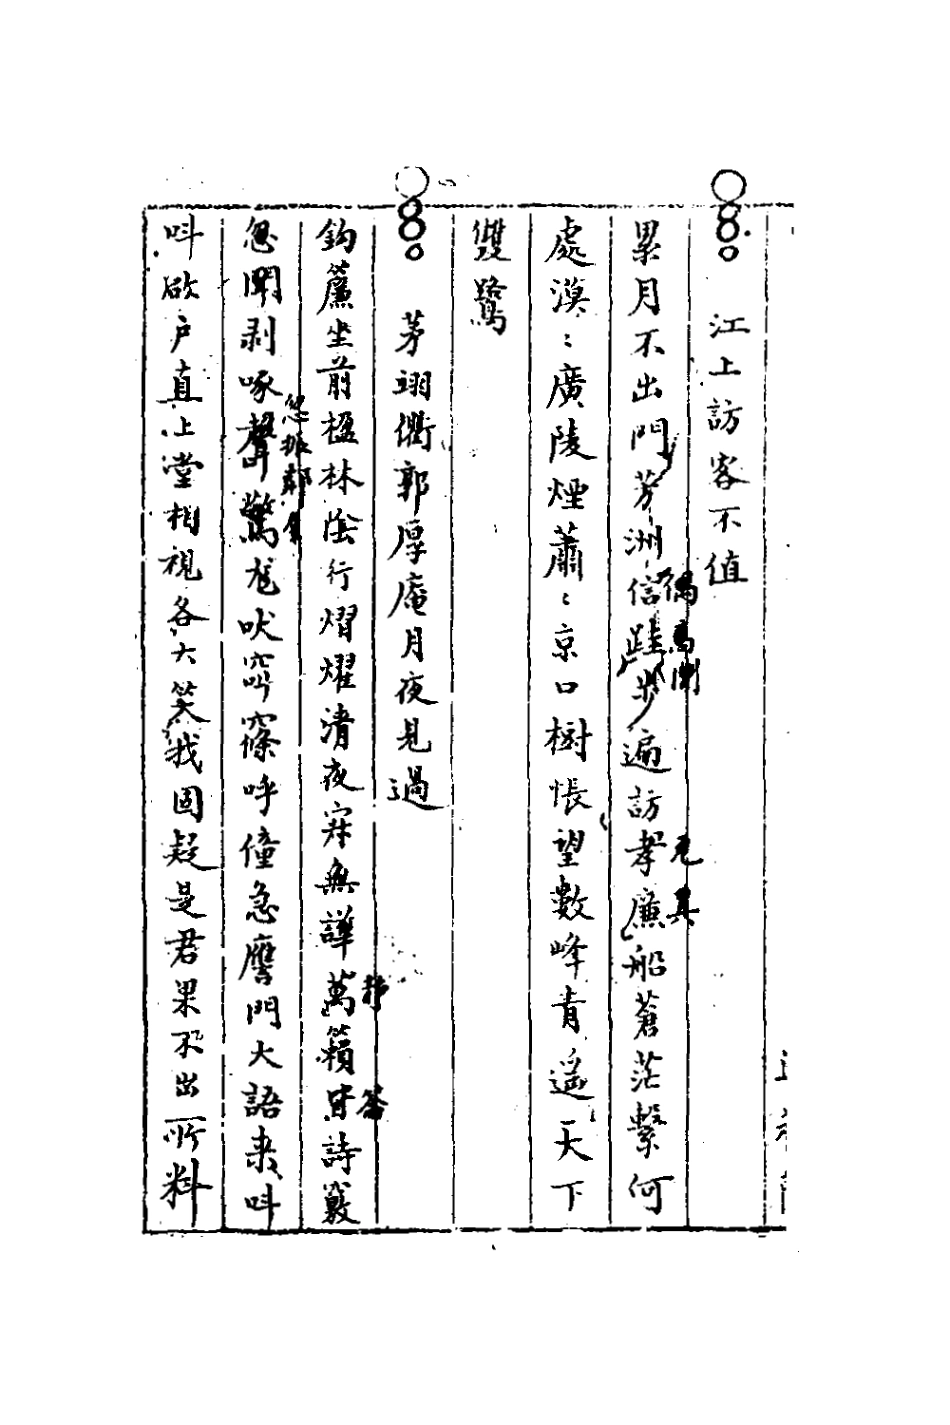 江上訪客不值
累月不出門芳洲信跬步遍訪孝廉船蒼茫繫何
處漠〻廣陵煙蕭〻京口樹悵望數峰青遥天下
雙鷺
茅翊衢郭厚庵月夜見過
鈎簾坐前楹林陰行熠燿清夜寂無譁萬籟皆詩竅
静
答
忽聞剥啄聲驚尨吠窈窱呼僮急譍門大語來呌
呌啟户直上堂相視各大笑我固疑是君果不出所料